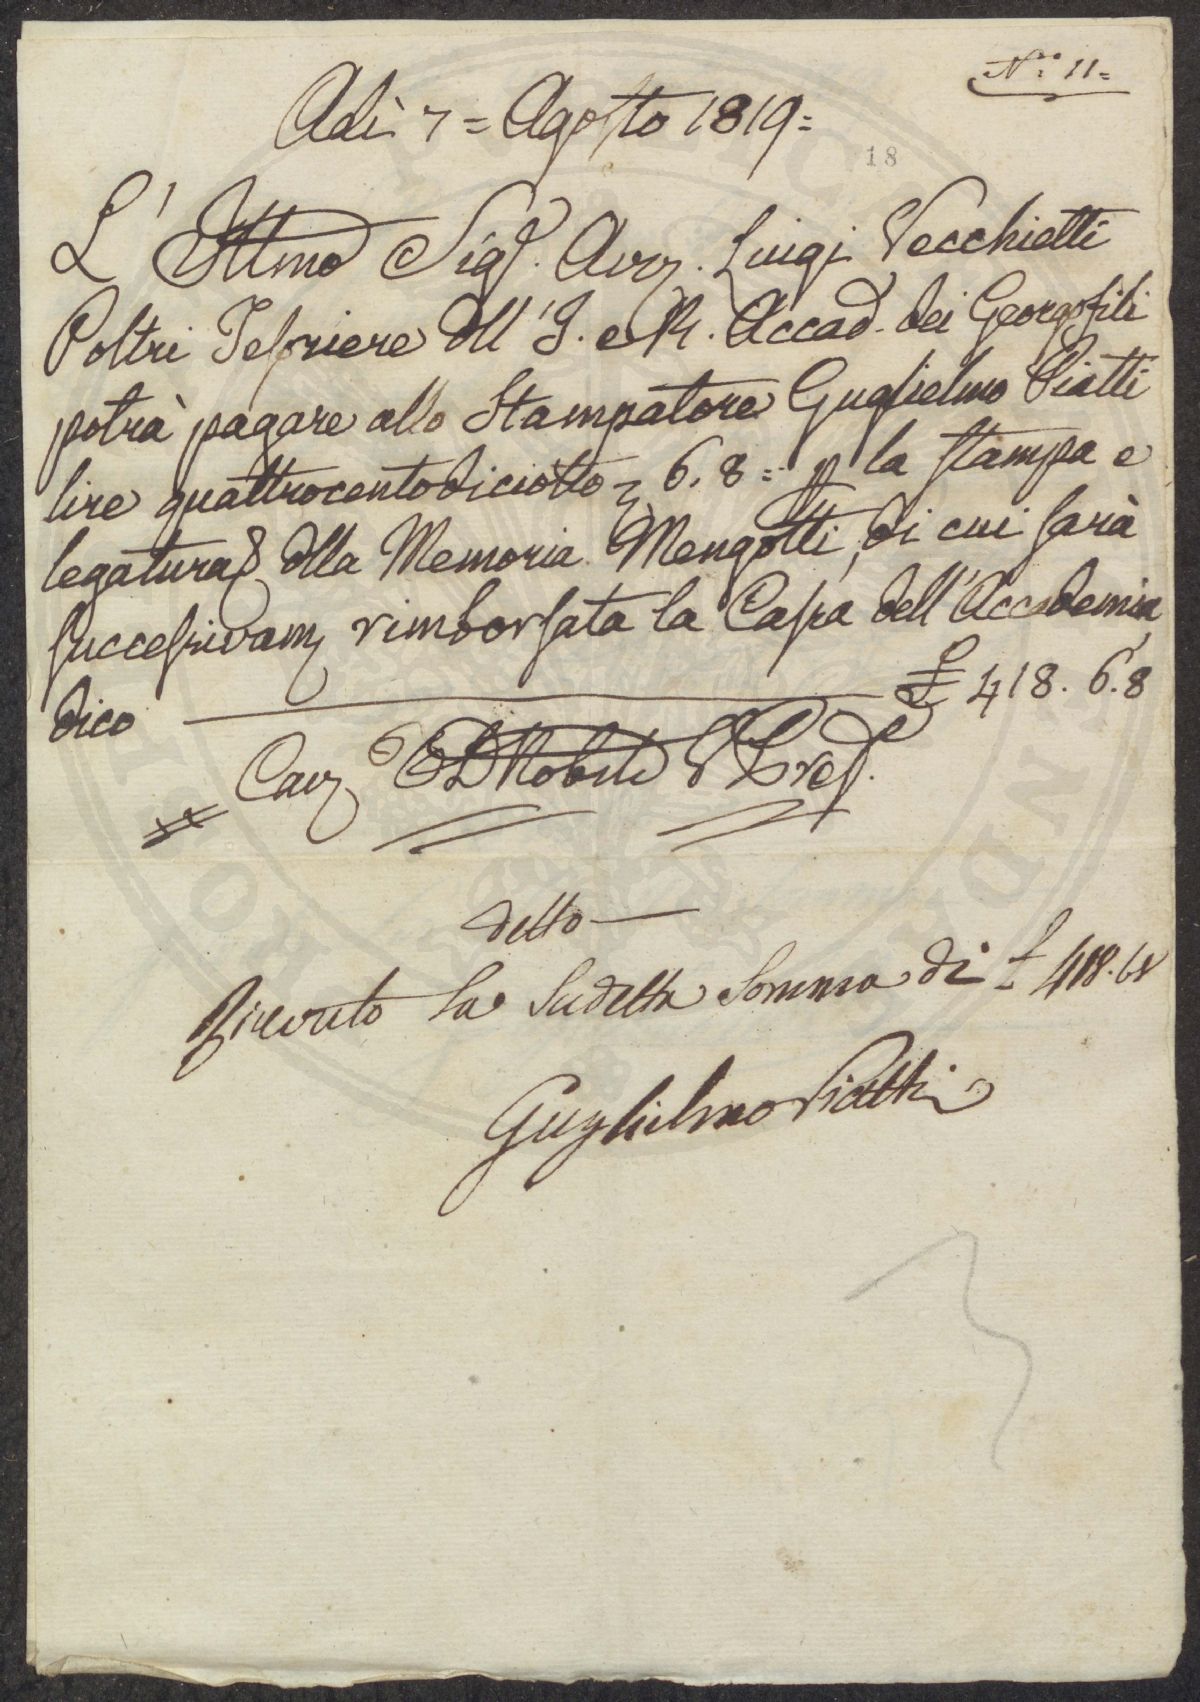 N.° 11=
Adì 7= Agosto 1819=
18
L' Illmo Sigr. Avv. Luigi Vecchietti
Poltri Tesoriere dll' I. e R. Accad. dei Georgofili
potrà pagare allo Stampatore Guglielmo Piatti
lire quattrocentodiciotto 6.8= p la stampa e
legatura dlla Memoria Mengotti, di cui sarà
successivam rimborsata la Cassa dell' Accademia
dico £ 418. 6.8
Cav
detto
Ricevuto La Sudetta Somma di £ 418. 6.8
Guglielmo Piatti